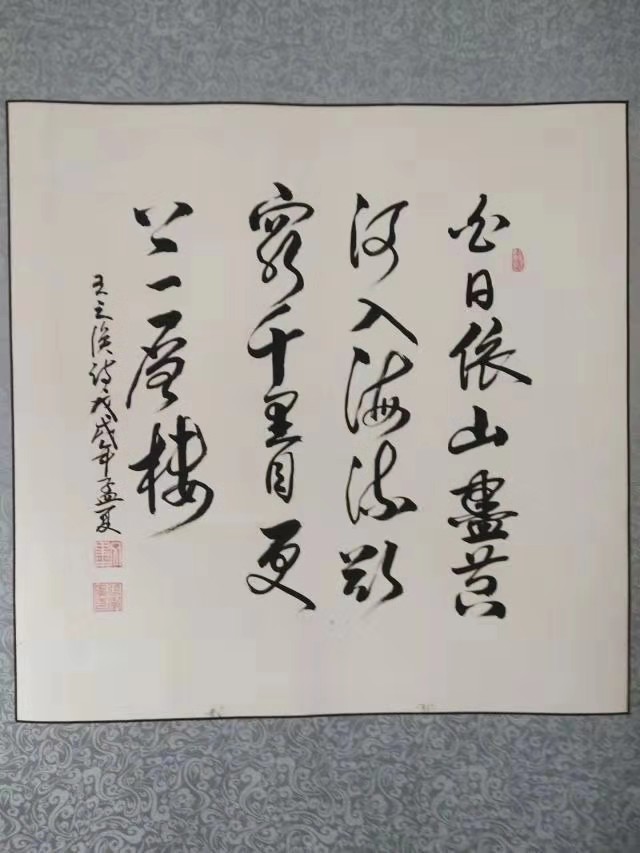 白日依山盡黄
河入海流欲
窮千里目更
上一層楼
王之渙詩戊戌年孟夏